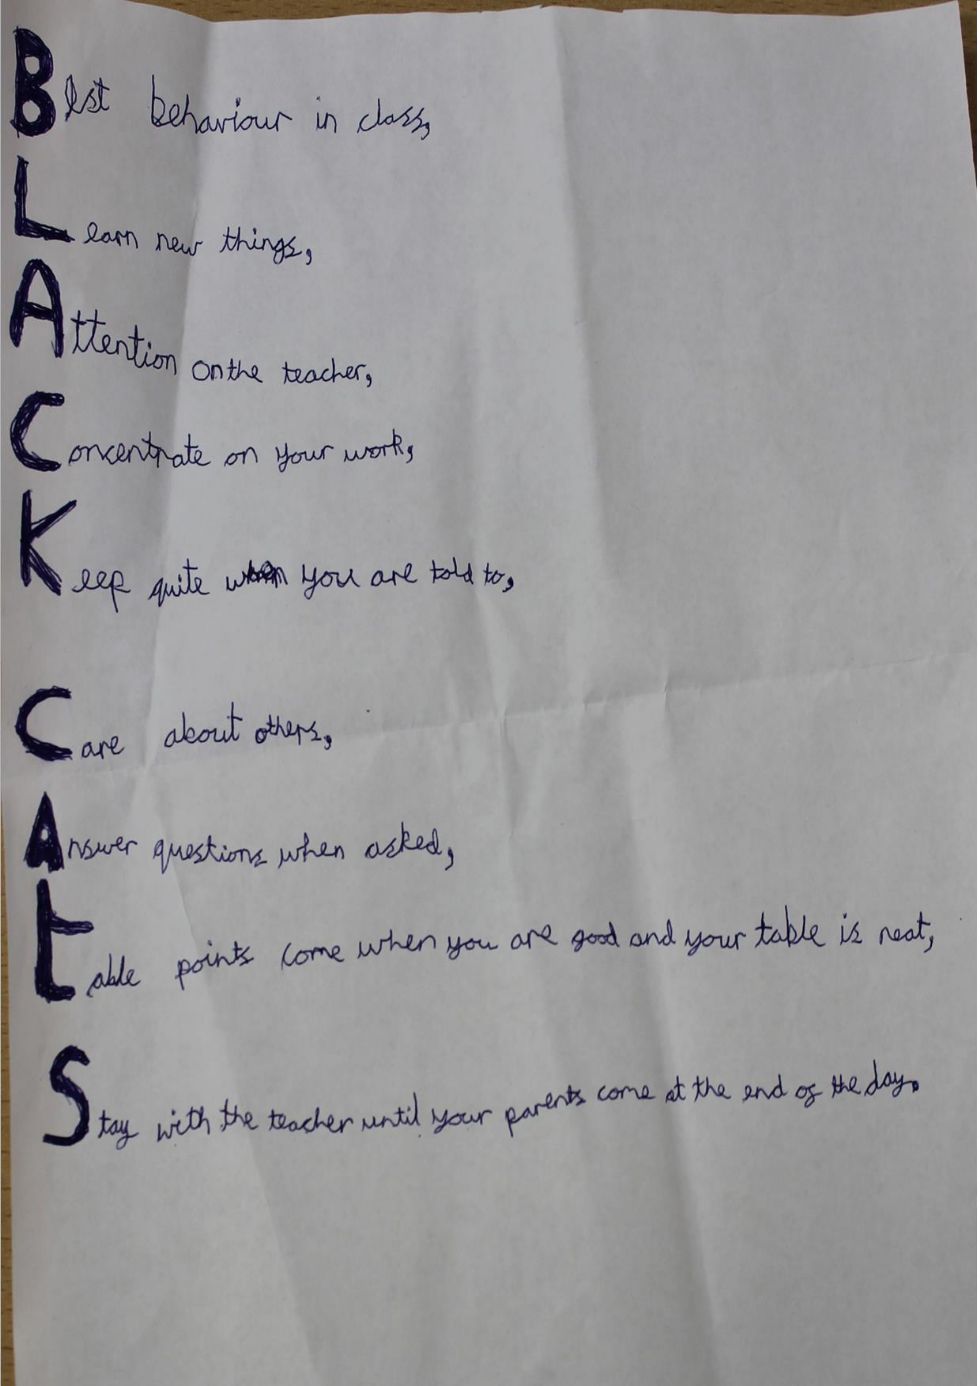 Best behaviour in class,
Learn new things,
Attention on the teacher,
Concentrate on your work,
Keep quite when you are told to,
Care about others,
Answer questions when asked,
Table points come when you are good and your table is neat,
Stay with the teacher until your parents come at the end of the day.